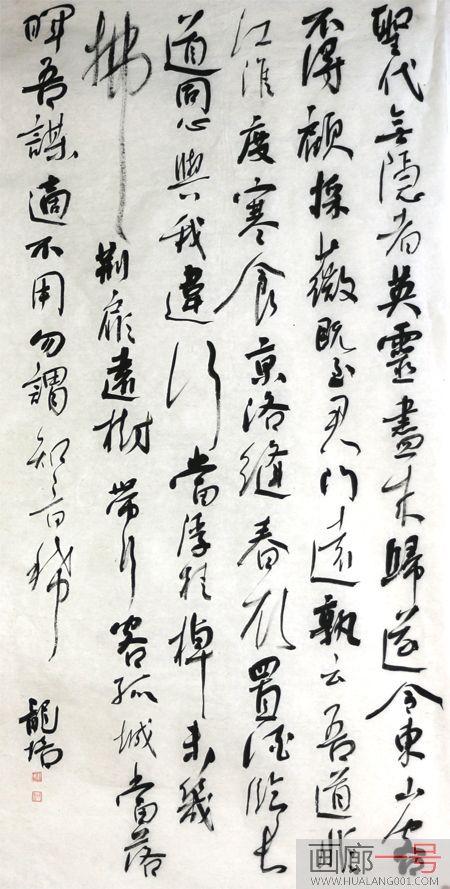 聖代無隱者英靈盡來歸遂令東山客
不得顧採薇既至君門遠孰云吾道非
江淮度寒食京洛縫春衣置酒臨長
道同心與我違行當浮桂棹未幾
拂荊扉遠樹帶行客孤城當落
暉吾謀適不用勿謂知音稀
龍瑞
画廊一号
WWW.HUALANG001.COM